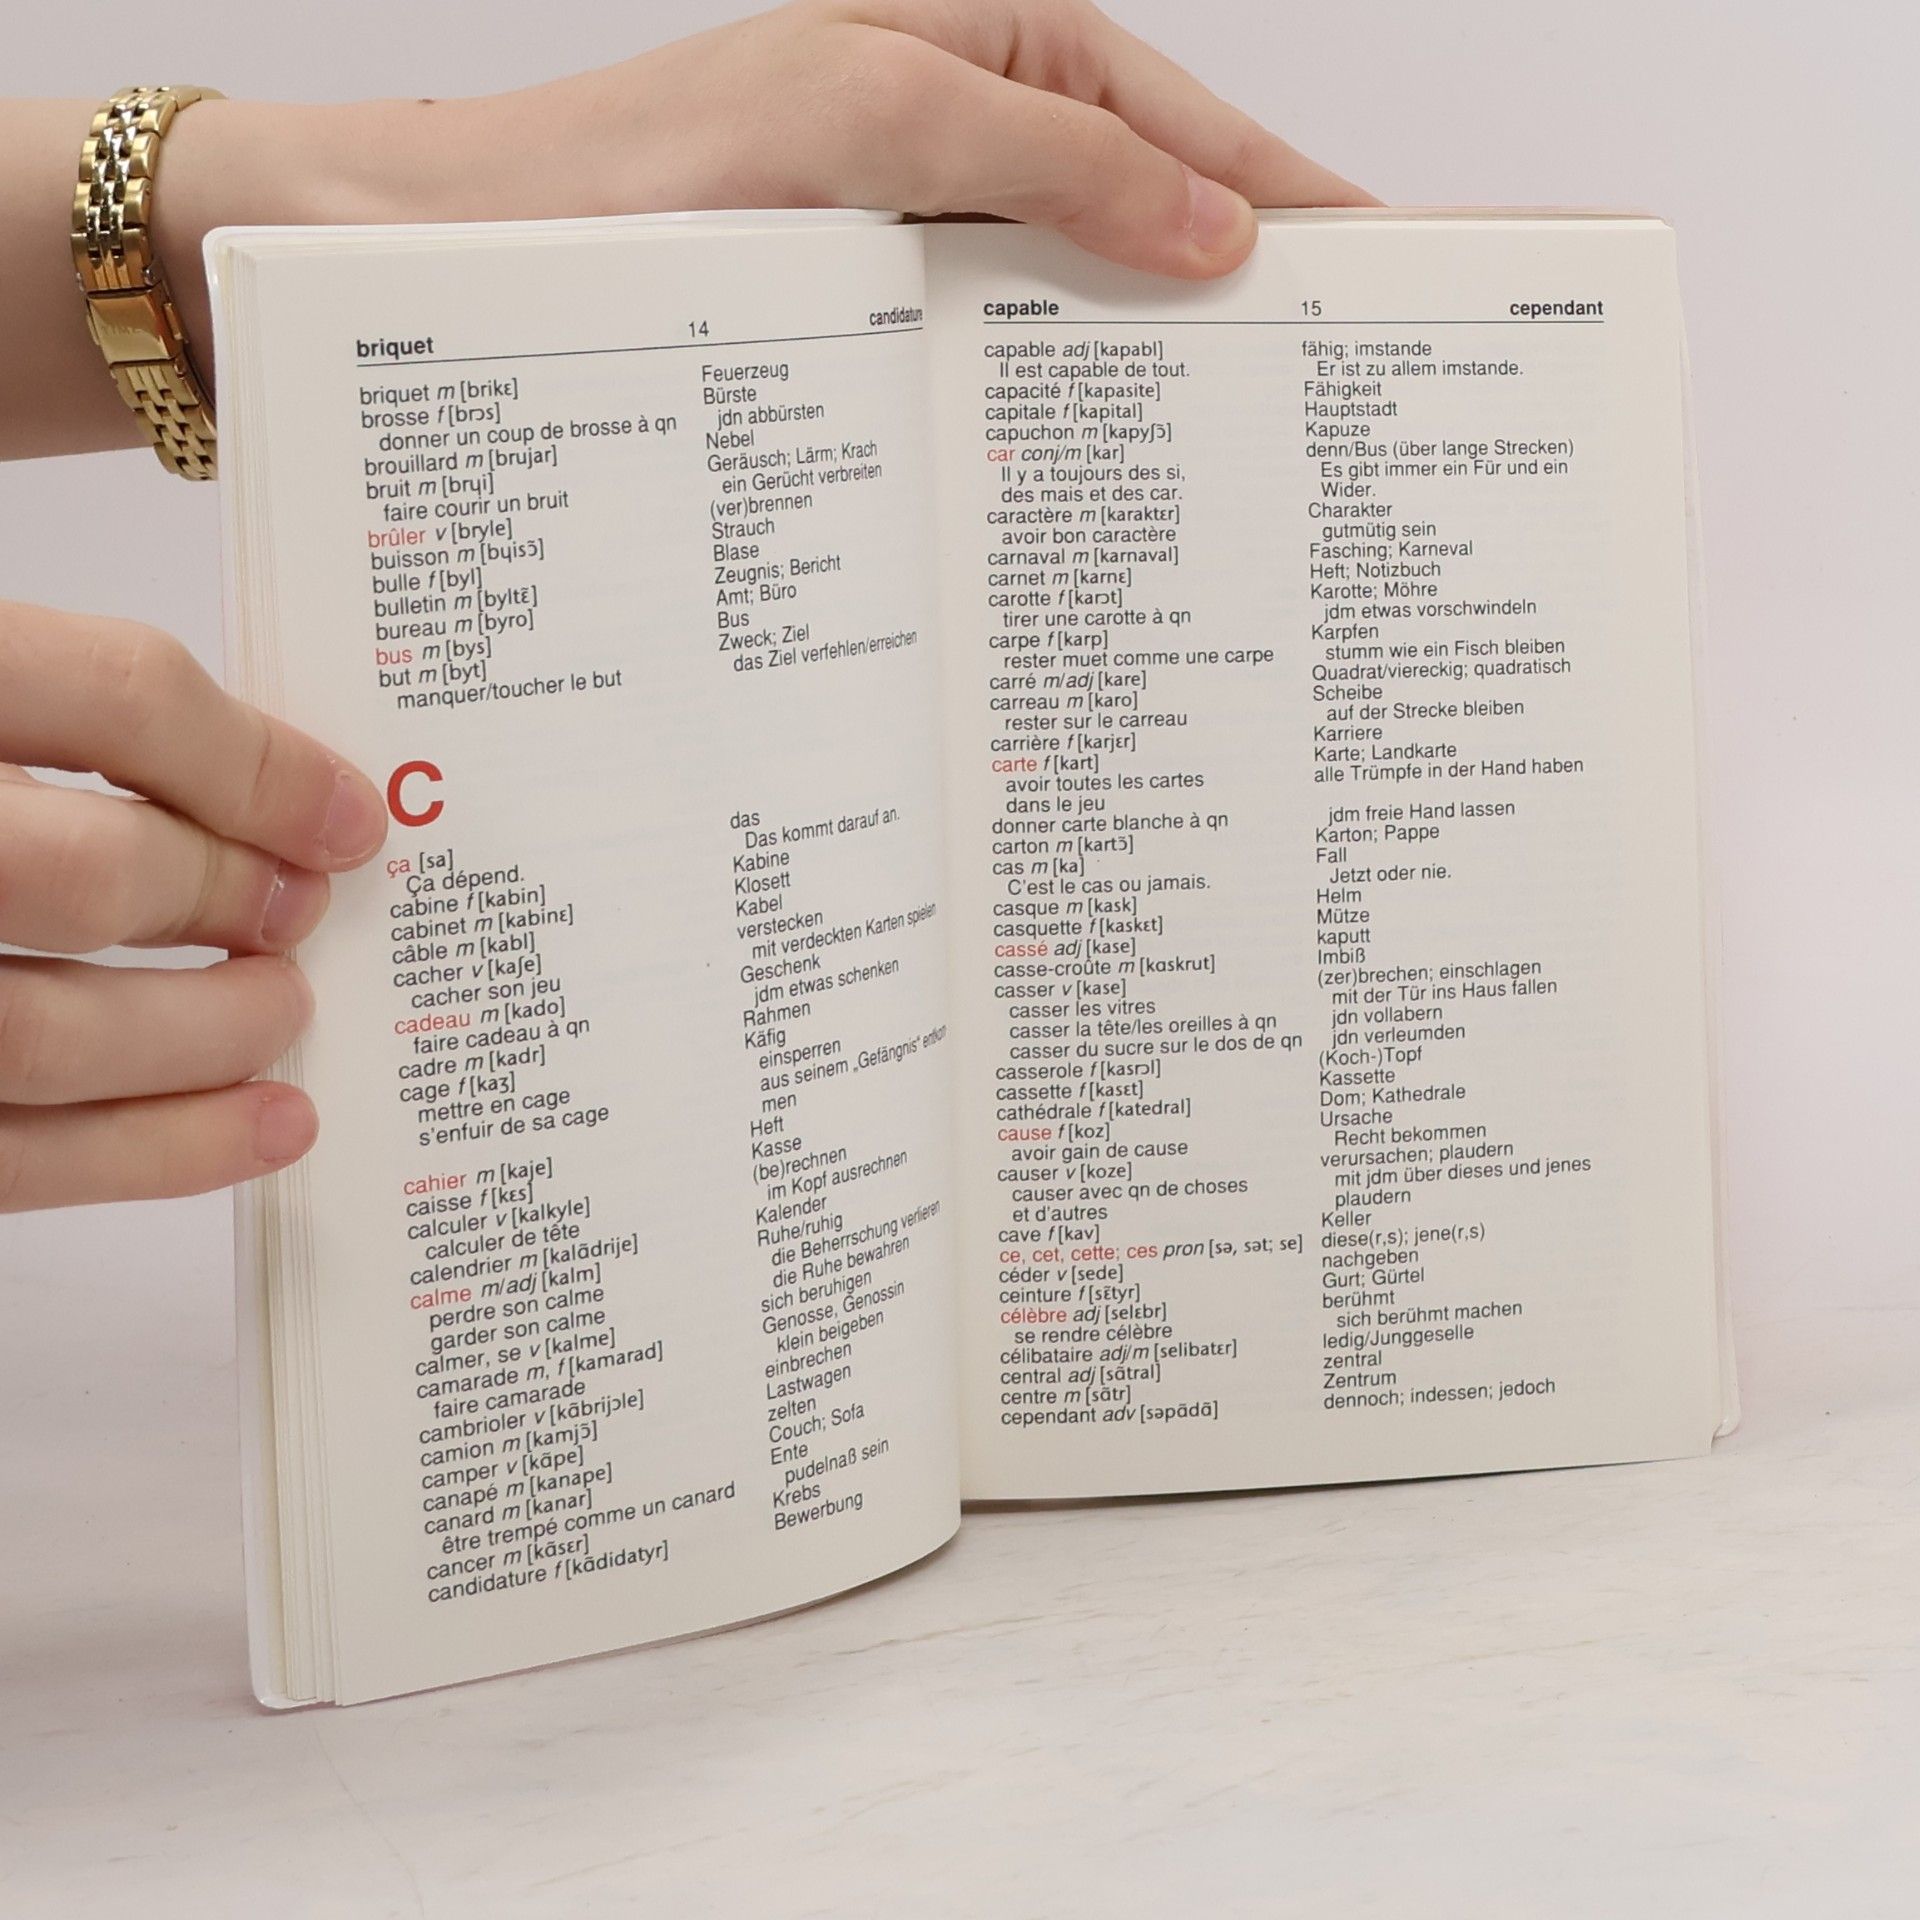 briquet 14 candidature
briquet m [brikɛ] Feuerzeug
brosse f [brɔs] Bürste
donner un coup de brosse à qn jdn abbürsten
brouillard m [brujar] Nebel
bruit m [brɥi] Geräusch; Lärm; Krach
faire courir un bruit ein Gerücht verbreiten
brûler v [bryle] (ver)brennen
buisson m [bɥisɔ̃] Strauch
bulle f [byl] Blase
bulletin m [byltɛ̃] Zeugnis; Bericht
bureau m [byro] Amt; Büro
bus m [bys] Bus
but m [byt] Zweck; Ziel
manquer/toucher le but das Ziel verfehlen/erreichen
C
ça [sa] das
Ça dépend. Das kommt darauf an.
cabine f [kabin] Kabine
cabinet m [kabinɛ] Klosett
câble m [kabl] Kabel
cacher v [kaʃe] verstecken
cacher son jeu mit verdeckten Karten spielen
cadeau m [kado] Geschenk
faire cadeau à qn jdm etwas schenken
cadre m [kadr] Rahmen
cage f [kaʒ] Käfig
mettre en cage einsperren
s'enfuir de sa cage aus seinem „Gefängnis“ entkom
men
cahier m [kaje] Heft
caisse f [kɛs] Kasse
calculer v [kalkyle] (be)rechnen
calculer de tête im Kopf ausrechnen
calendrier m [kalãdrije] Kalender
calme m/adj [kalm] Ruhe/ruhig
perdre son calme die Beherrschung verlieren
garder son calme die Ruhe bewahren
calmer, se v [kalme] sich beruhigen
camarade m, f [kamarad] Genosse, Genossin
faire camarade klein beigeben
cambrioler v [kãbrijɔle] einbrechen
camion m [kamjɔ̃] Lastwagen
camper v [kãpe] zelten
canapé m [kanape] Couch; Sofa
canard m [kanar] Ente
être trempé comme un canard pudelnaß sein
cancer m [kãsɛr] Krebs
candidature f [kãdidatyr] Bewerbung
capable 15 cependant
capable adj [kapabl] fähig; imstande
Il est capable de tout. Er ist zu allem imstande.
capacité f [kapasite] Fähigkeit
capitale f [kapital] Hauptstadt
capuchon m [kapyʃɔ̃] Kapuze
car conj/m [kar] denn/Bus (über lange Strecken)
Il y a toujours des si, Es gibt immer ein Für und ein
des mais et des car. Wider.
caractère m [karaktɛr] Charakter
avoir bon caractère gutmütig sein
carnaval m [karnaval] Fasching; Karneval
carnet m [karnɛ] Heft; Notizbuch
carotte f [karɔt] Karotte; Möhre
tirer une carotte à qn jdm etwas vorschwindeln
carpe f [karp] Karpfen
rester muet comme une carpe stumm wie ein Fisch bleiben
carré m/adj [kare] Quadrat/viereckig; quadratisch
carreau m [karo] Scheibe
rester sur le carreau auf der Strecke bleiben
carrière f [karjɛr] Karriere
carte f [kart] Karte; Landkarte
avoir toutes les cartes alle Trümpfe in der Hand haben
dans le jeu
donner carte blanche à qn jdm freie Hand lassen
carton m [kartɔ̃] Karton; Pappe
cas m [ka] Fall
C'est le cas ou jamais. Jetzt oder nie.
casque m [kask] Helm
casquette f [kaskɛt] Mütze
cassé adj [kase] kaputt
casse-croûte m [kɑskrut] Imbiß
casser v [kase] (zer)brechen; einschlagen
casser les vitres mit der Tür ins Haus fallen
casser la tête/les oreilles à qn jdn vollabern
casser du sucre sur le dos de qn jdn verleumden
casserole f [kasrɔl] (Koch-)Topf
cassette f [kasɛt] Kassette
cathédrale f [katedral] Dom; Kathedrale
cause f [koz] Ursache
avoir gain de cause Recht bekommen
causer v [koze] verursachen; plaudern
causer avec qn de choses mit jdm über dieses und jenes
et d'autres plaudern
cave f [kav] Keller
ce, cet, cette; ces pron [sə, sət; se] diese(r,s); jene(r,s)
céder v [sede] nachgeben
ceinture f [sɛ̃tyr] Gurt; Gürtel
célèbre adj [selɛbr] berühmt
se rendre célèbre sich berühmt machen
célibataire adj/m [selibatɛr] ledig/Junggeselle
central adj [sãtral] zentral
centre m [sãtr] Zentrum
cependant adv [səpãdã] dennoch; indessen; jedoch